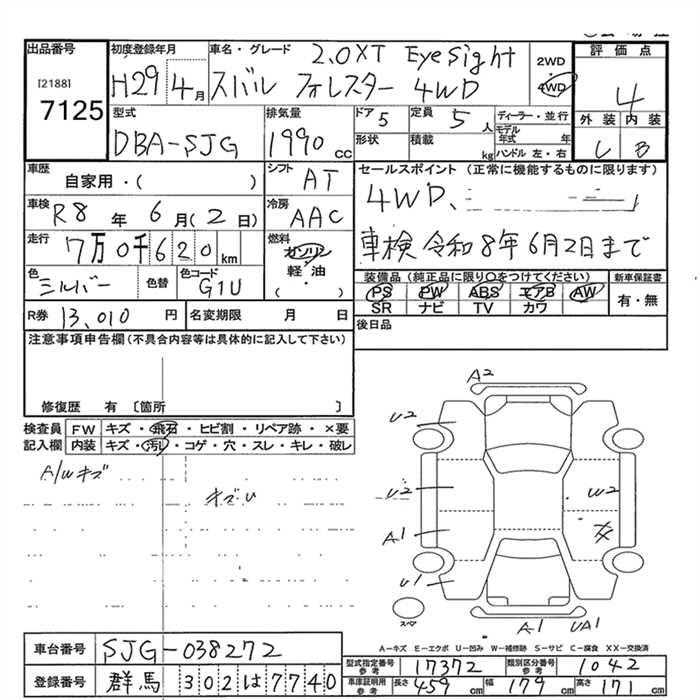 出品番号
[2188]
7125
初度登録年月
H29 4月
車名・グレード
2.0XT EyeSight
スバル フォレスター 4WD
2WD
4WD
評価点
4
外装 内装
B
型式
DBA-SJG
排気量
1990 cc
ドア 5
定員 5 人
形状
積載 kg
ディーラー・並行
モデル年式 年
ハンドル 左・右
車歴
自家用・( )
シフト AT
車検 R8年 6月(2日)
冷房 AAC
走行 7万0千620km
燃料
ガソリン
軽・油
( ・ )
色 シルバー
色替
色コード G1U
R券 13,010 円
名変期限 月 日
セールスポイント (正常に機能するものに限ります)
4WD、
車検 令和8年6月2日まで
装備品 (純正品に限り○をつけてください)
PS PW ABS エアB AW
SR ナビ TV カワ
新車保証書
有・無
後日品
注意事項申告欄(不具合内容等は具体的に記入して下さい)
修復歴 有 〔箇所 〕
検査員記入欄
FW キズ・飛石・ヒビ割・リペア跡・×要
内装 キズ・汚レ・コゲ・穴・スレ・キレ・破レ
A/Wキズ
キズU
A2
U2
U2
W2
A1
U1
スペア
A1
UA1
A-キズ E-エクボ U-凹み W-補修跡 S-サビ C-腐食 XX-交換済
車台番号 SJG-038272
登録番号 群馬 302 は 7740
型式指定番号 参考 17372
類別区分番号 参考 1042
車庫証明用 参考 長さ 459 cm 幅 179 cm 高さ 171 cm